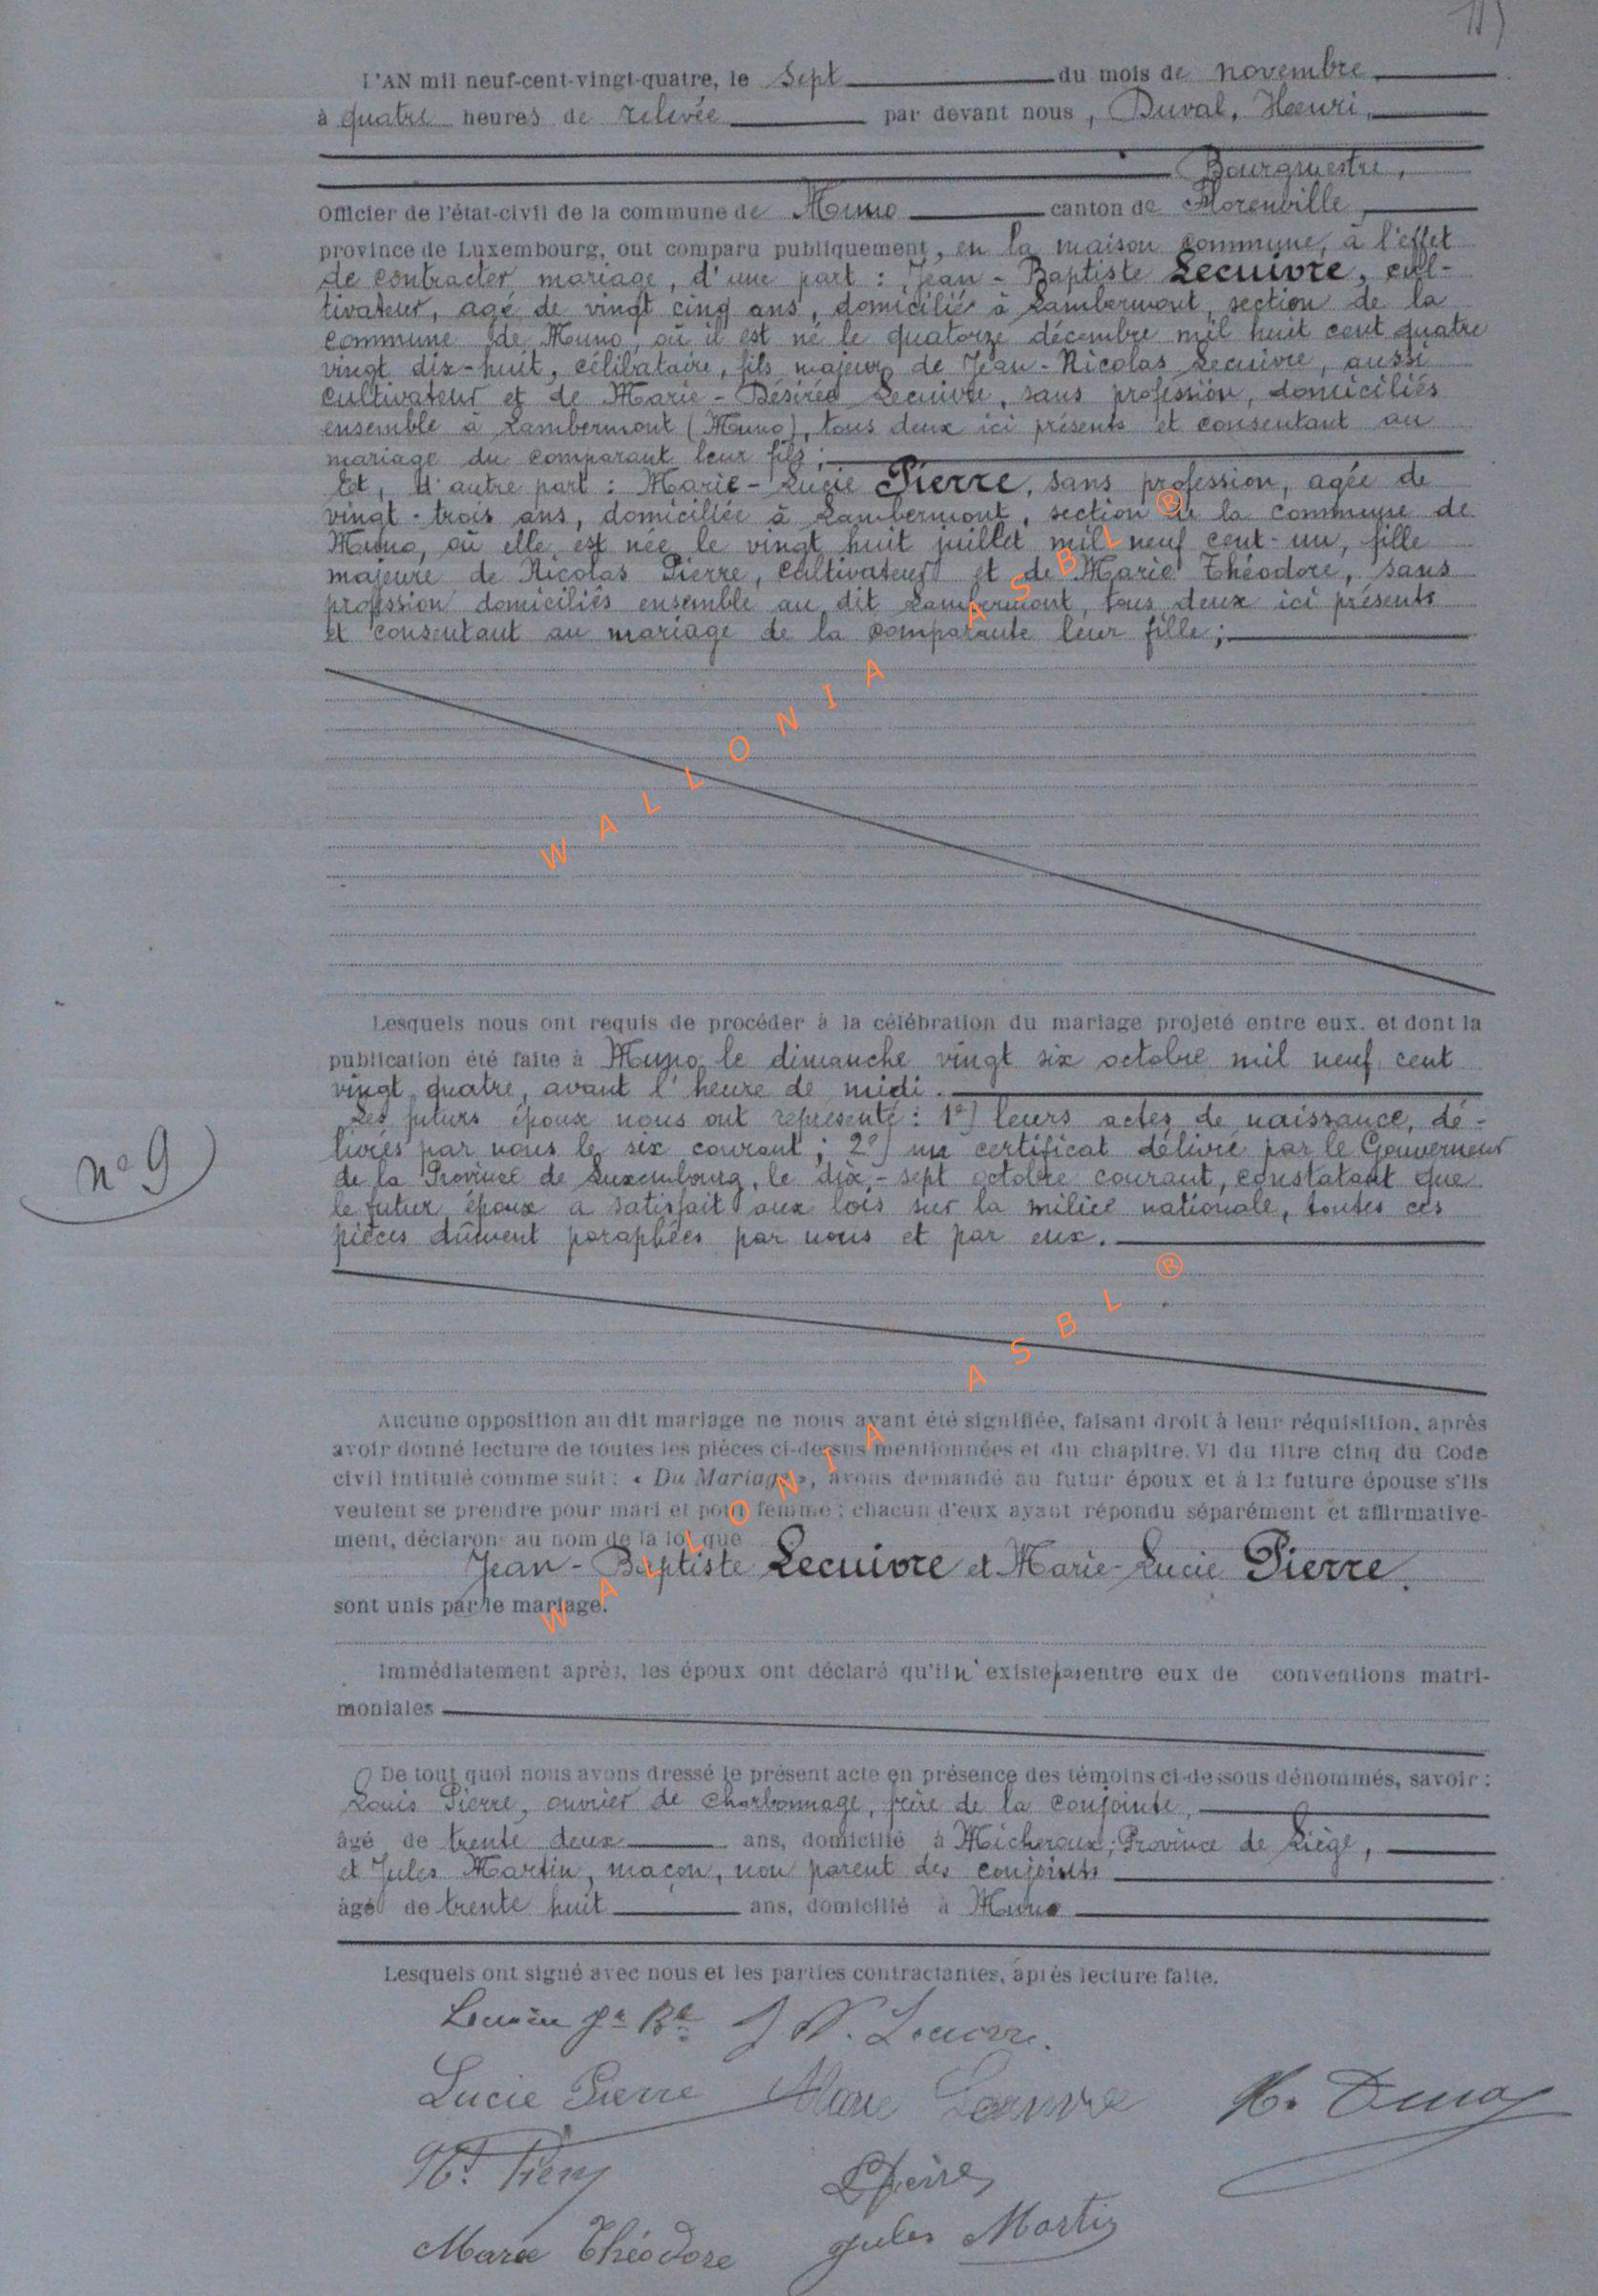 L'AN mil neuf-cent-vingt-quatre, le Sept du mois de novembre
à quatre heures de relevée par devant nous, Duval, Henri,
Bourgmestre,
Officier de l'état-civil de la commune de Muno canton de Florenville,
province de Luxembourg, ont comparu publiquement, en la maison commune, à l'effet
de contracter mariage, d'une part : Jean-Baptiste Lecuivre, cul-
tivateur, agé de vingt cinq ans, domicilié à Lambermont, section de la
commune de Muno, où il est né le quatorze décembre mil huit cent quatre
vingt dix-huit, célibataire, fils majeur de Jean-Nicolas Lecuivre, aussi
cultivateur et de Marie-Désirée Lecuivre, sans profession, domiciliés
ensemble à Lambermont (Muno), tous deux ici présents et consentant au
mariage du comparant leur fils ;
Et, d'autre part : Marie-Lucie Pierre, sans profession, agée de
vingt-trois ans, domiciliée à Lambermont, section de la commune de
Muno, où elle est née le vingt huit juillet mil neuf cent-un, fille
majeure de Nicolas Pierre, cultivateur et de Marie Théodore, sans
profession domiciliés ensemble au dit Lambermont, tous deux ici présents
et consentant au mariage de la comparante leur fille ;
WALLONIA ASBL ®
Lesquels nous ont requis de procéder à la célébration du mariage projeté entre eux, et dont la
publication été faite à Muno, le dimanche vingt six octobre mil neuf cent
vingt quatre, avant l'heure de midi.
Les futurs époux nous ont représenté : 1°) leurs actes de naissance, dé-
livrés par nous le six courant ; 2°) un certificat délivré par le Gouverneur
n° 9
de la Province de Luxembourg, le dix-sept octobre courant, constatant que
le futur époux a satisfait aux lois sur la milice nationale, toutes ces
pièces dûment paraphées par nous et par eux.
WALLONIA ASBL ®
Aucune opposition au dit mariage ne nous ayant été signifiée, faisant droit à leur réquisition, après
avoir donné lecture de toutes les pièces ci-dessus mentionnées et du chapitre. VI du titre cinq du Code
civil intitulé comme suit : « Du Mariage », avons demandé au futur époux et à la future épouse s'ils
veulent se prendre pour mari et pour femme ; chacun d'eux ayant répondu séparément et affirmative-
ment, déclarons au nom de la loi que
Jean-Baptiste Lecuivre et Marie-Lucie Pierre.
sont unis par le mariage.
Immédiatement après, les époux ont déclaré qu'il n'existe pas entre eux de conventions matri-
moniales
De tout quoi nous avons dressé le présent acte en présence des témoins ci-dessous dénommés, savoir :
Louis Pierre, ouvrier de charbonnage, frère de la conjointe,
âgé de trente deux ans, domicilié à Micheroux, Province de Liège,
et Jules Martin, maçon, non parent des conjoints
âgé de trente huit ans, domicilié à Muno
Lesquels ont signé avec nous et les parties contractantes, après lecture faite.
Lecuivre Jn Bte J N. Lecuivre.
Lucie Pierre Marie Lecuivre H. Duval
Nas Pierre L Pierre
Marie Théodore Jules Martin